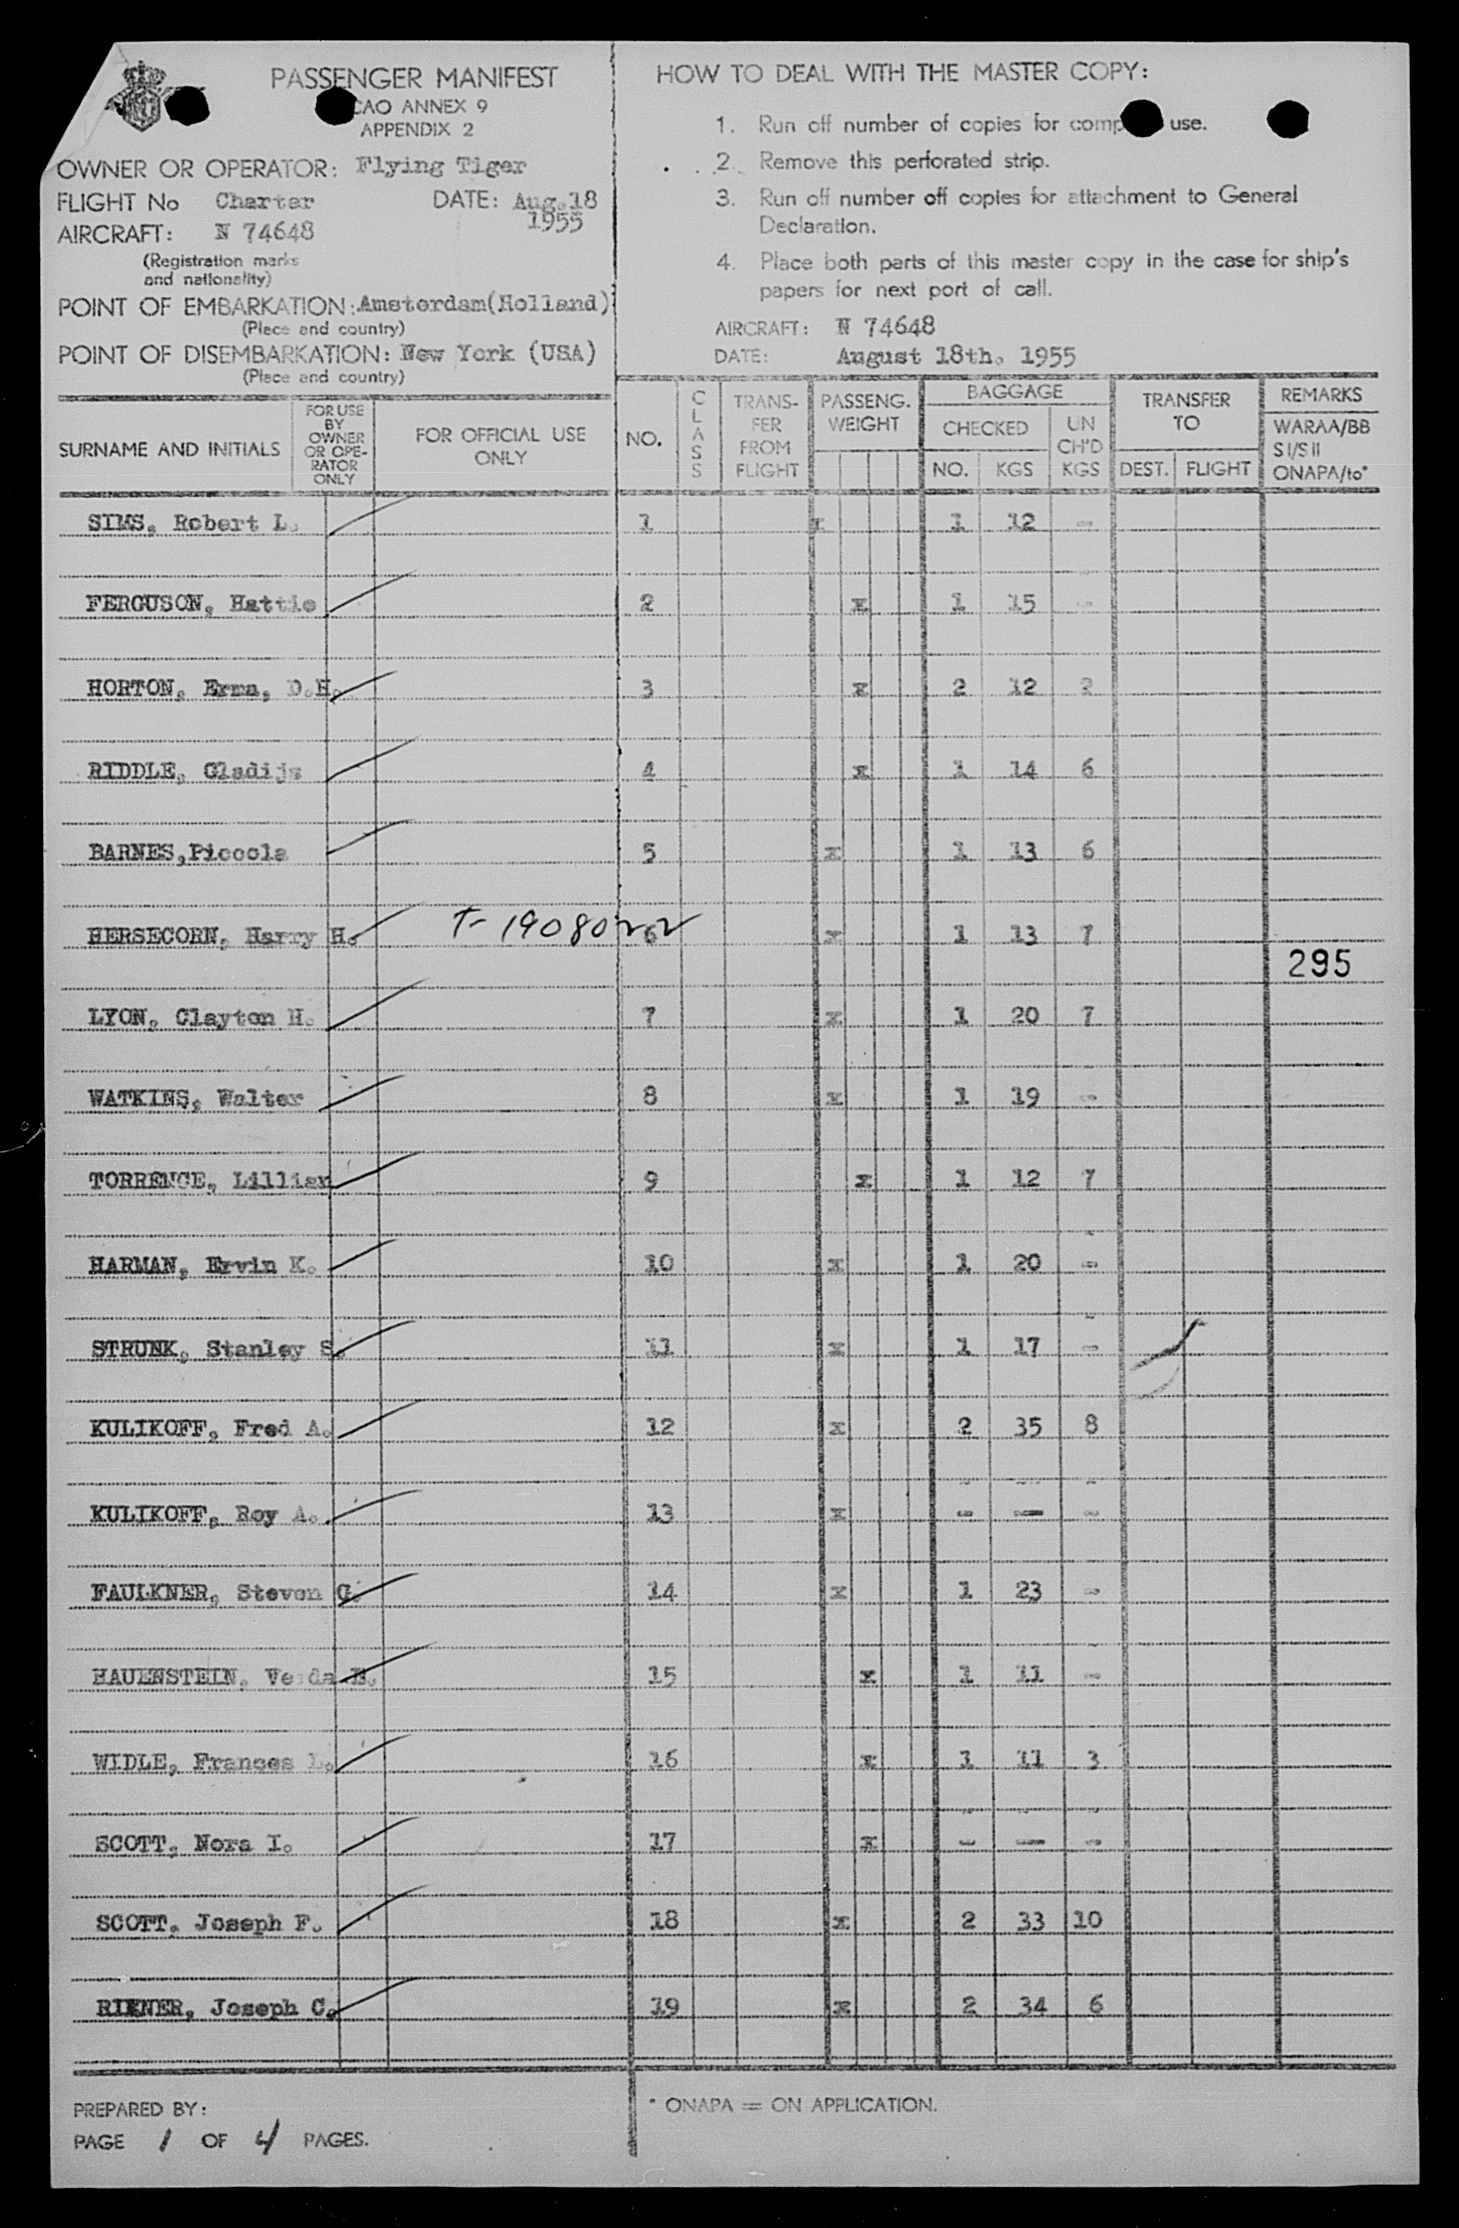 PASSENGER MANIFEST
CAO ANNEX 9
APPENDIX 2
OWNER OR OPERATOR: Flying Tiger
FLIGHT No Charter DATE: Aug.18
1955
AIRCRAFT: N 74648
(Registration marks
and nationality)
POINT OF EMBARKATION: Amsterdam(Holland)
(Place and country)
POINT OF DISEMBARKATION: New York (USA)
(Place and country)
HOW TO DEAL WITH THE MASTER COPY:
1. Run off number of copies for comp use.
2. Remove this perforated strip.
3. Run off number off copies for attachment to General
Declaration.
4. Place both parts of this master copy in the case for ship's
papers for next port of call.
AIRCRAFT: N 74648
DATE: August 18th. 1955
SURNAME AND INITIALS
FOR USE
BY
OWNER
OR OPE-
RATOR
ONLY
FOR OFFICIAL USE
ONLY
NO.
CLASS
TRANS-
FER
FROM
FLIGHT
PASSENG.
WEIGHT
BAGGAGE
CHECKED
NO. KGS
UN
CH'D
KGS
TRANSFER
TO
DEST. FLIGHT
REMARKS
WARAA/BB
SI/SII
ONAPA/to*
SIMS, Robert L. 1 x 1 12 -
FERGUSON, Hattie 2 x 1 15 -
HORTON, Erma, D.H. 3 x 2 12 2
RIDDLE, Gladijs 4 x 1 14 6
BARNES,Piccola 5 x 1 13 6
HERSECORN, Harry H. T-1908022 6 x 1 13 7
295
LYON, Clayton H. 7 x 1 20 7
WATKINS, Walter 8 x 1 19 -
TORRENCE, Lillian 9 x 1 12 7
HARMAN, Ervin K. 10 x 1 20 -
STRUNK, Stanley S. 11 x 1 17 -
KULIKOFF, Fred A. 12 x 2 35 8
KULIKOFF, Roy A. 13 x - - -
FAULKNER, Steven C. 14 x 1 23 -
HAUENSTEIN, E. 15 x 1 11 -
WIDLE, Frances L. 16 x 1 11 3
SCOTT, Nora I. 17 x - - -
SCOTT, Joseph F. 18 x 2 33 10
RIENER, Joseph C. 19 x 2 34 6
PREPARED BY:
PAGE 1 OF 4 PAGES.
* ONAPA = ON APPLICATION.